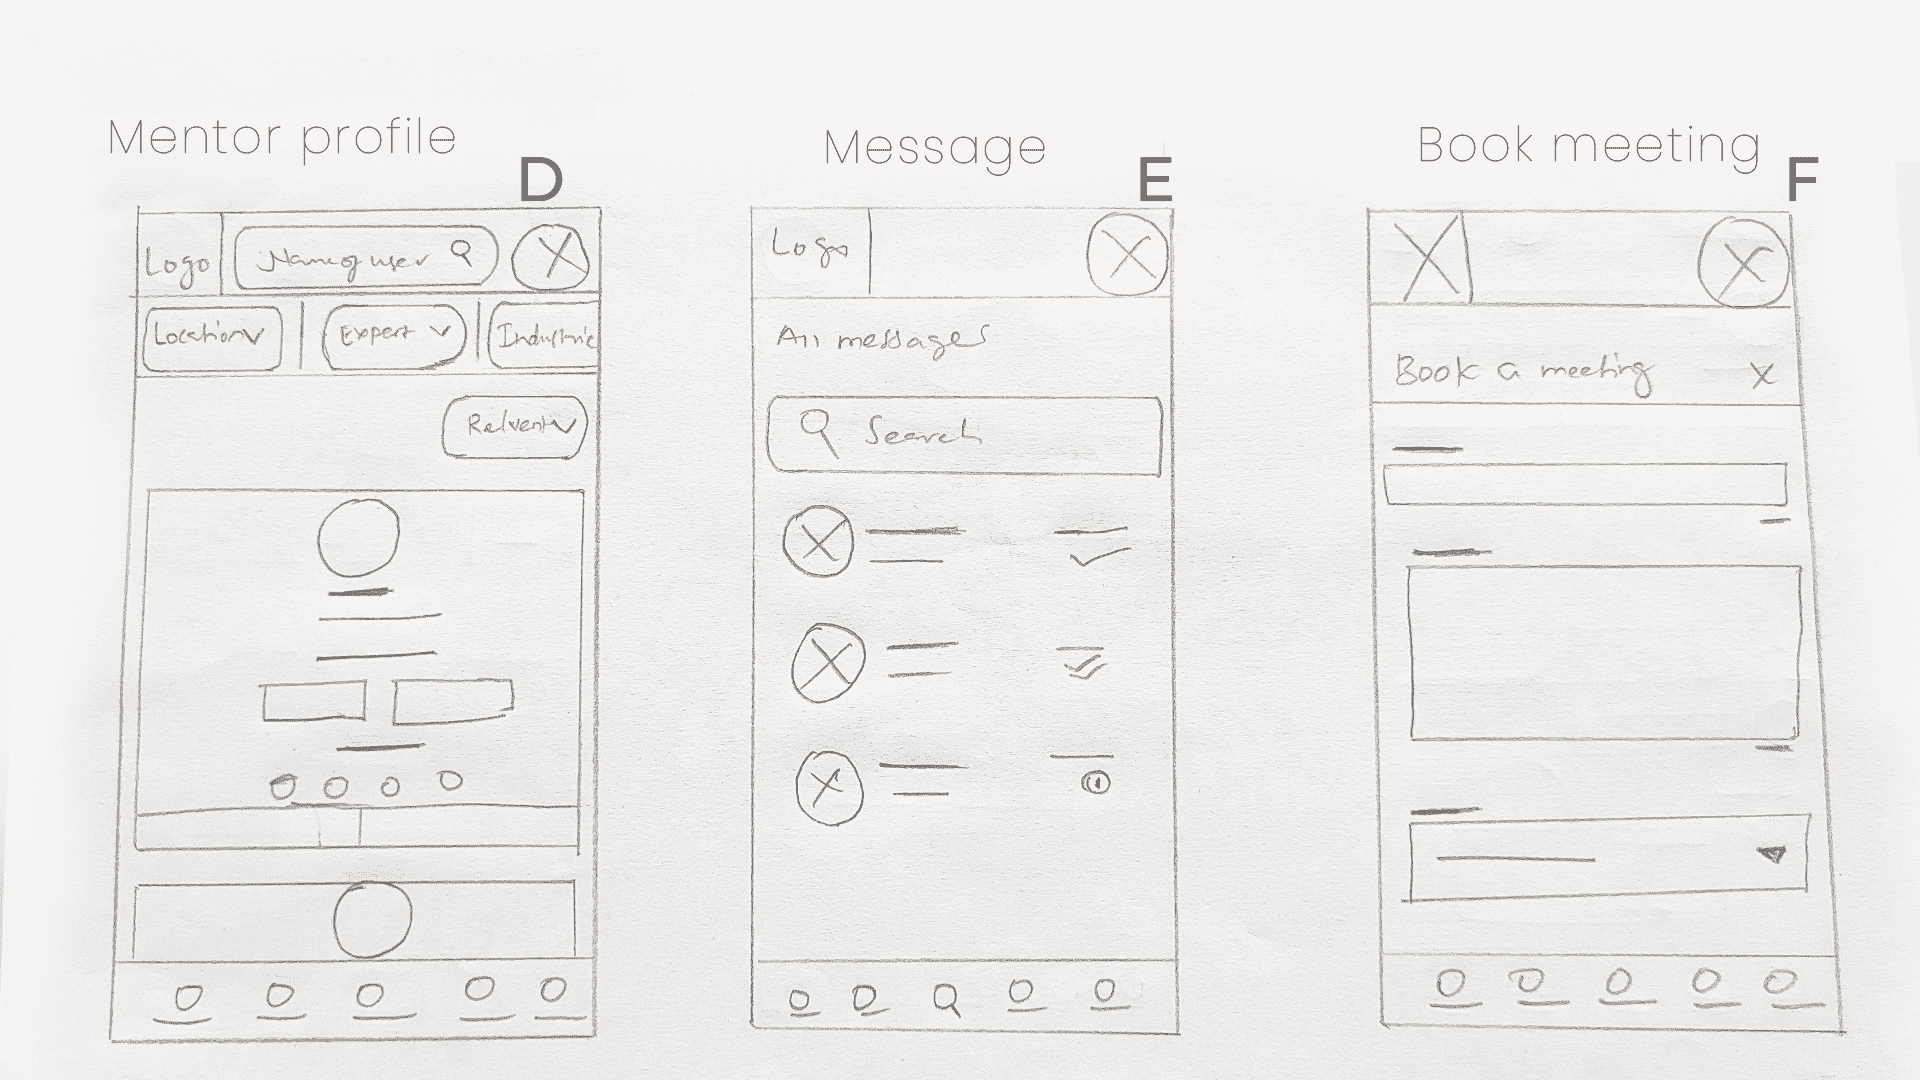 Mentor profile
D
Logo
Name of user
Location
Expert
Industrie
Relvent
Message
E
Logo
All messages
Search
Book meeting
F
Book a meeting